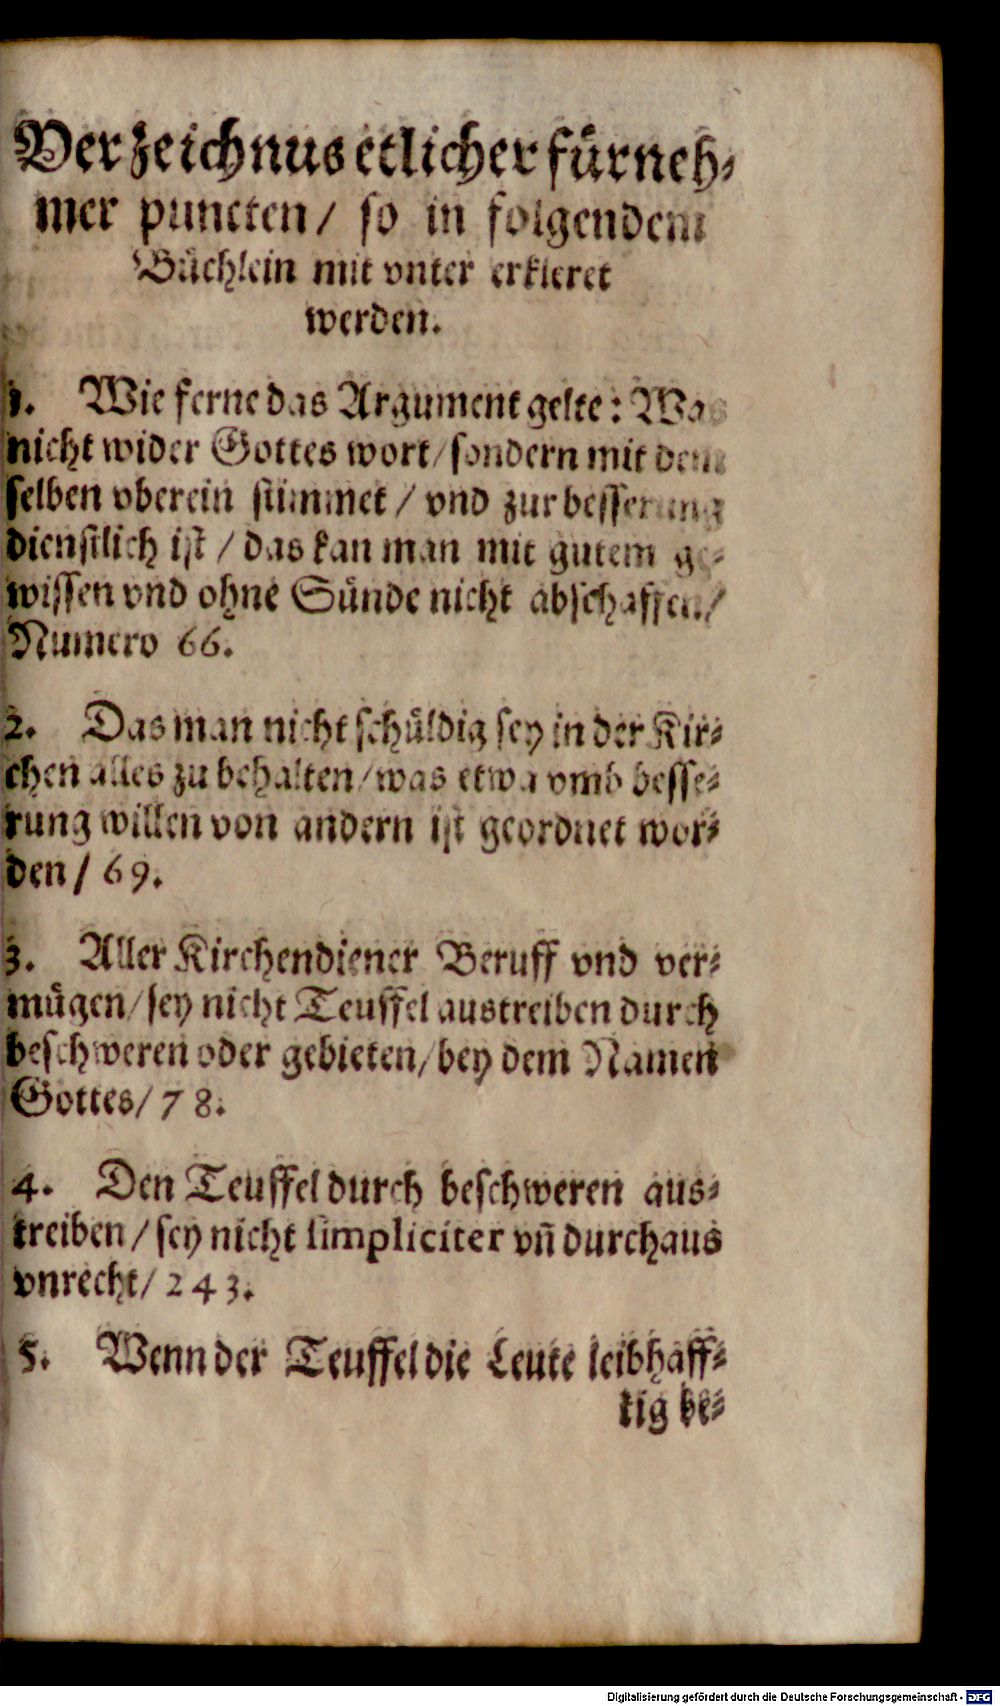 Verzeichnus etlicher fürneh-
mer puncten/ so in folgendem
Büchlein mit vnter erkleret
werden.
1. Wie ferne das Argument gelte: Was
nicht wider Gottes wort/ sondern mit dem
selben vberein stimmet/ vnd zur besserung
dienstlich ist/ das kan man mit gutem ge-
wissen vnd ohne Sünde nicht abschaffen/
Numero 66.
2. Das man nicht schüldig sey in der Kir-
chen alles zu behalten/ was etwa vmb besse-
rung willen von andern ist geordnet wor-
den/ 69.
3. Aller Kirchendiener Beruff vnd ver-
mügen/ sey nicht Teuffel austreiben durch
beschweren oder gebieten/ bey dem Namen
Gottes/ 78.
4. Den Teuffel durch beschweren aus-
treiben/ sey nicht simpliciter vn̄ durchaus
vnrecht/ 243.
5. Wenn der Teuffel die Leute leibhaff-
tig be-
Digitalisierung gefördert durch die Deutsche Forschungsgemeinschaft - DFG